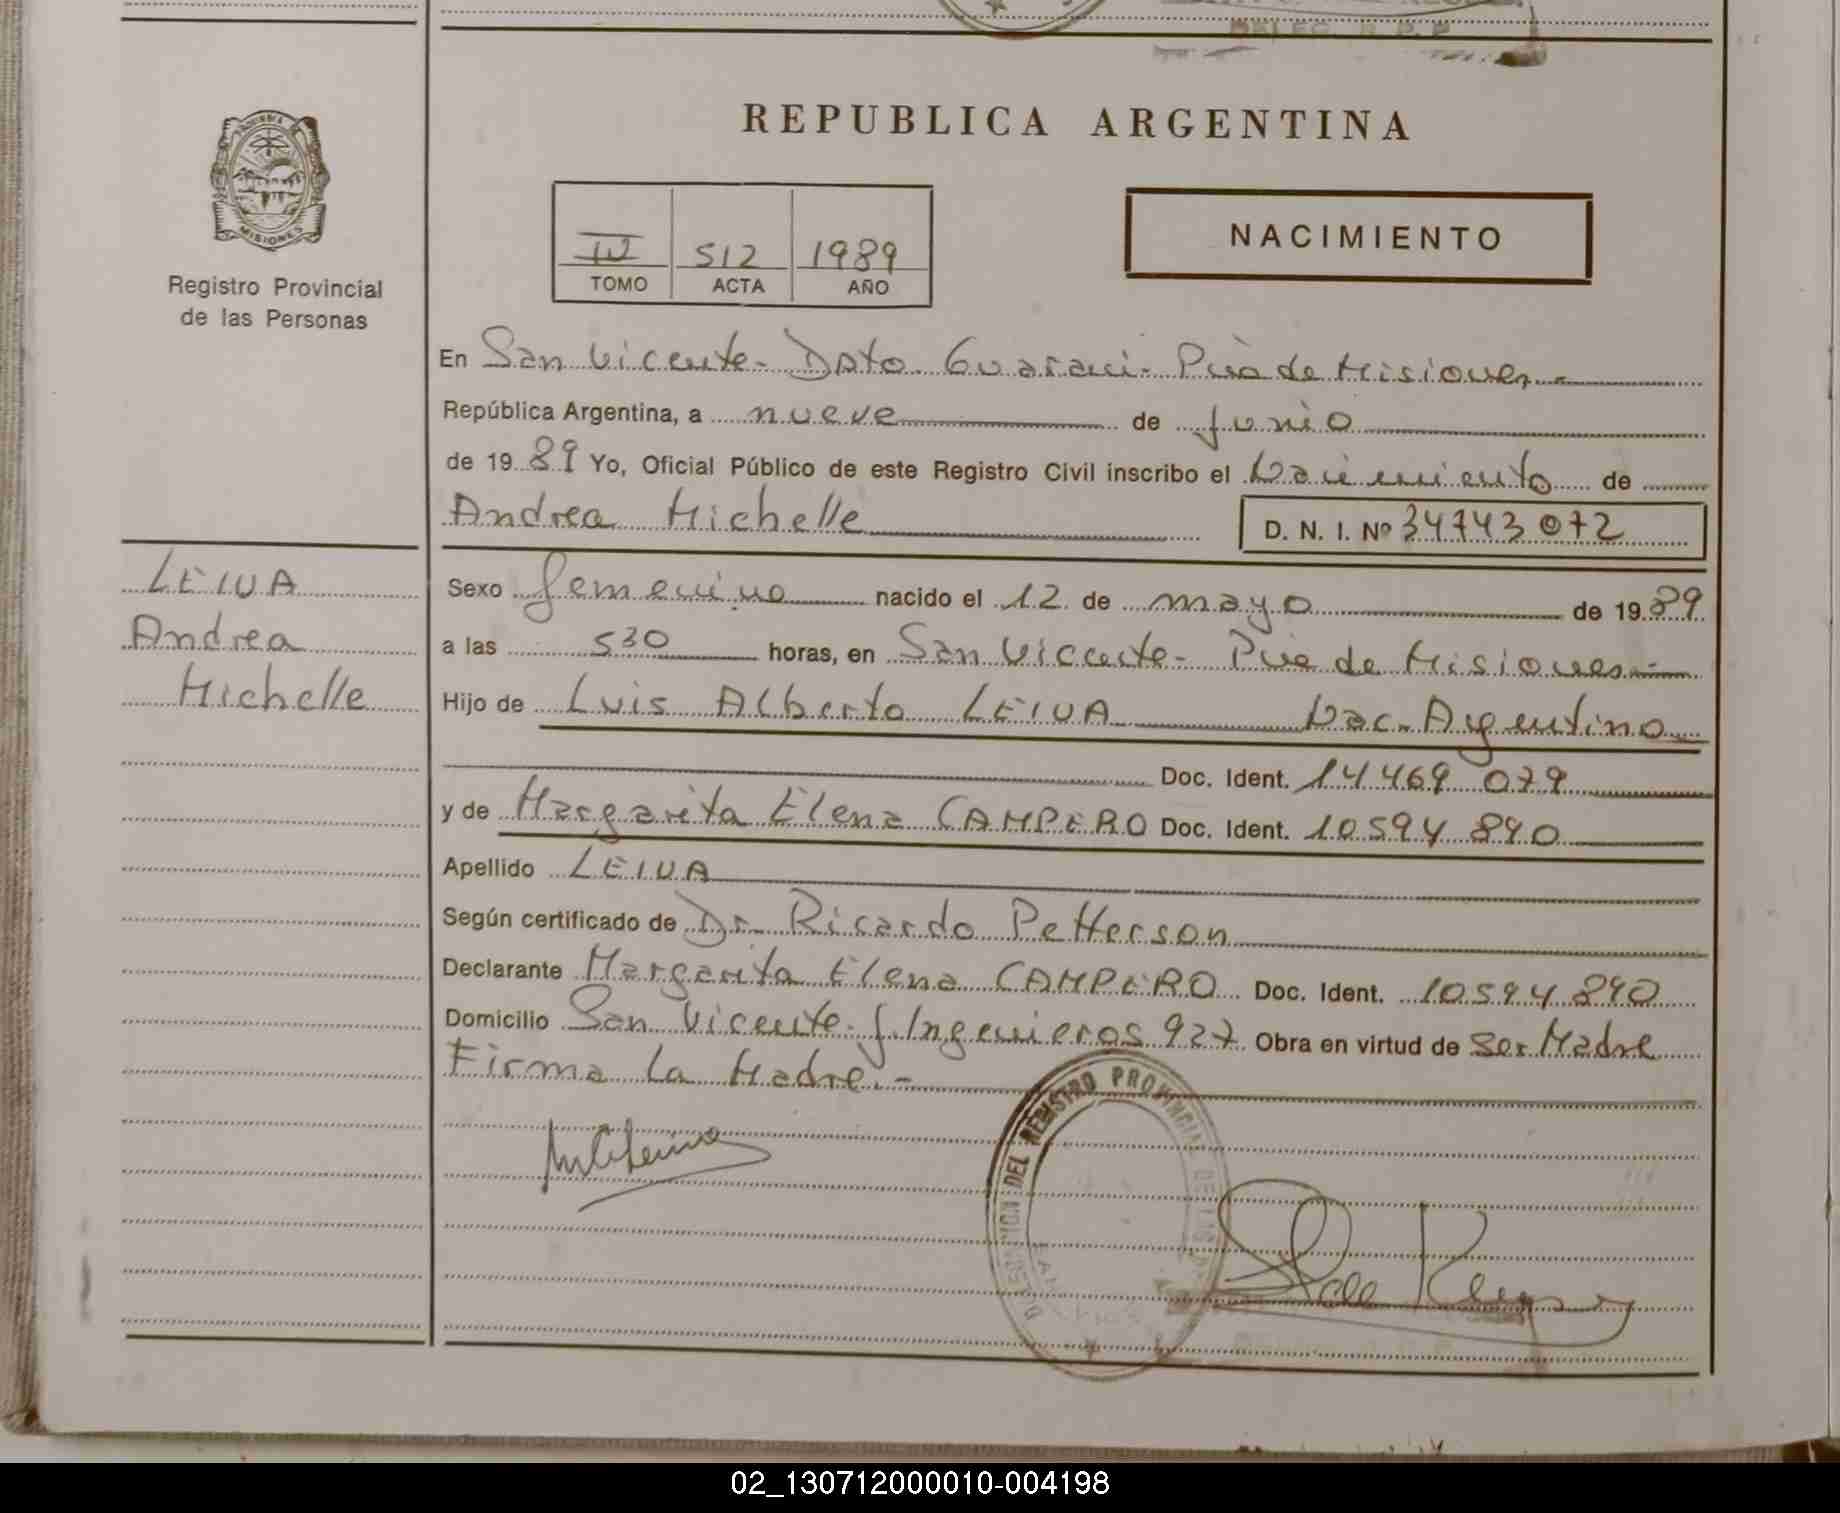 DELEG. R. P. P.
PROVINCIA DE
MISIONES
Registro Provincial
de las Personas
REPUBLICA ARGENTINA
IV 512 1989
TOMO ACTA AÑO
NACIMIENTO
En San Vicente - Dpto. Guaraní - Pcia de Misiones -
República Argentina, a nueve de junio
de 1989 Yo, Oficial Público de este Registro Civil inscribo el Nacimiento de
Andrea Michelle D. N. I. Nº 34743072
LEIVA
Andrea
Michelle
Sexo femenino nacido el 12 de mayo de 1989
a las 530 horas, en San Vicente - Pcia de Misiones -
Hijo de Luis Alberto LEIVA Nac. Argentino
Doc. Ident. 14469079
y de Margarita Elena CAMPERO Doc. Ident. 10594890
Apellido LEIVA
Según certificado de Dr. Ricardo Petterson
Declarante Margarita Elena CAMPERO Doc. Ident. 10594890
Domicilio San Vicente - J. Ingenieros 927 Obra en virtud de Ser Madre
Firma La Madre. -
DELEGACION DEL REGISTRO PROVINCIAL DE LAS
02_130712000010-004198